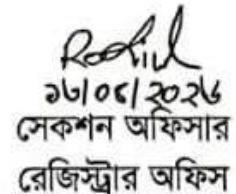 ১৬/০৫/২০২৬
সেকশন অফিসার
রেজিস্ট্রার অফিস